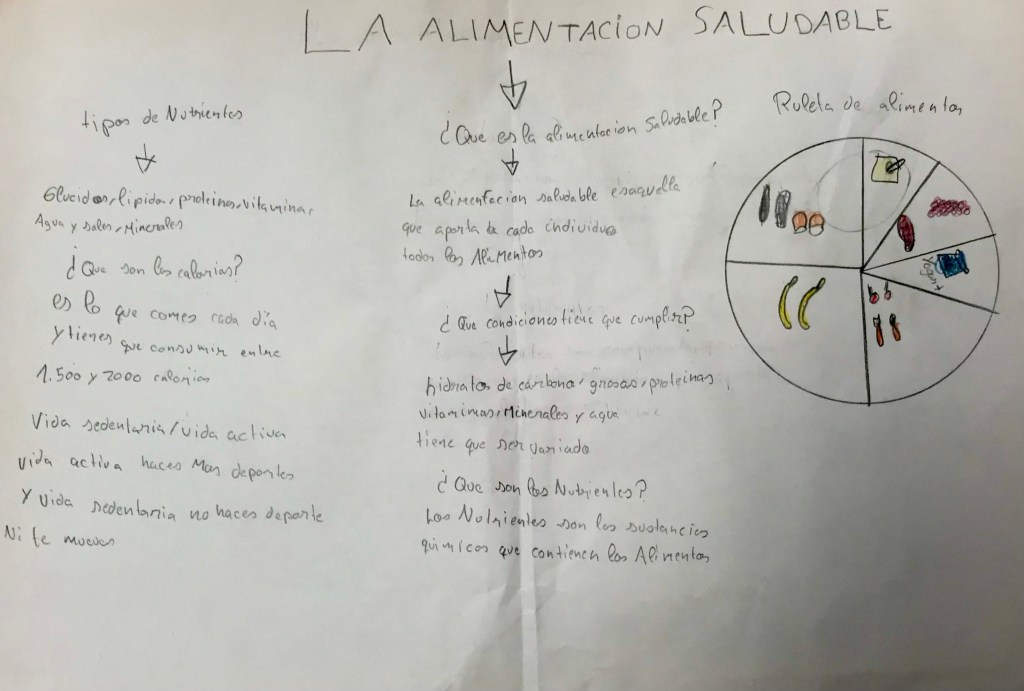 LA ALIMENTACION SALUDABLE
tipos de Nutrientes
Glucidos, lipidos, proteinas, vitaminas,
Agua y sales, Minerales
¿Que son las calorias?
es lo que comes cada día
y tienes que consumir entre
1.500 y 2000 calorias
Vida sedentaria/vida activa
vida activa haces Mas deportes
Y vida sedentaria no haces deporte
Ni te mueves
¿Que es la alimentacion Saludable?
La alimentacion saludable es aquella
que aporta a cada individuo
todos los Alimentos
¿Que condiciones tiene que cumplir?
hidratos de carbono, grasas, proteinas,
vitaminas, Minerales y agua
tiene que ser variado
¿Que son los Nutrientes?
Los Nutrientes son las sustancias
quimicas que contienen los Alimentos
Ruleta de alimentos